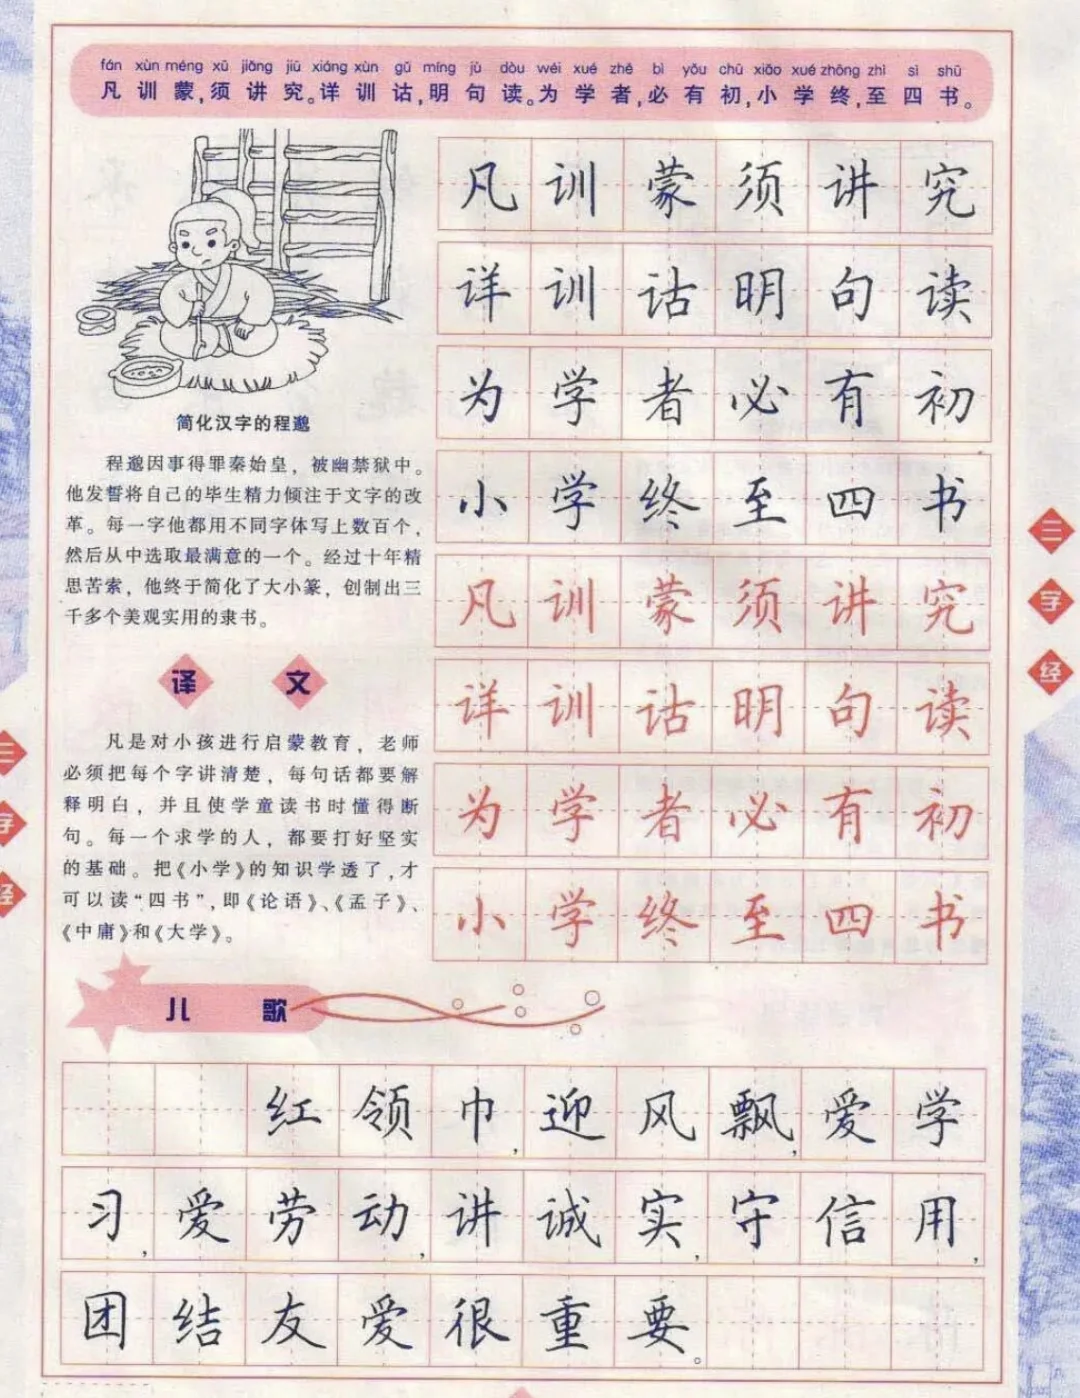 fán xùn méng xū jiǎng jiū xiáng xùn gǔ míng jù dòu wéi xué zhě bì yǒu chū xiǎo xué zhōng zhì sì shū
凡训蒙,须讲究。详训诂,明句读。为学者,必有初,小学终,至四书。
凡训蒙须讲究
详训诂明句读
为学者必有初
小学终至四书
凡训蒙须讲究
详训诂明句读
为学者必有初
小学终至四书
简化汉字的程邈
程邈因事得罪秦始皇，被幽禁狱中。
他发誓将自己的毕生精力倾注于文字的改
革。每一字他都用不同字体写上数百个，
然后从中选取最满意的一个。经过十年精
思苦索，他终于简化了大小篆，创制出三
千多个美观实用的隶书。
译文
凡是对小孩进行启蒙教育，老师
必须把每个字讲清楚，每句话都要解
释明白，并且使学童读书时懂得断
句。每一个求学的人，都要打好坚实
的基础。把《小学》的知识学透了,才
可以读“四书”,即《论语》、《孟子》、
《中庸》和《大学》。
儿歌
红领巾,迎风飘,爱学
习,爱劳动,讲诚实,守信用,
团结友爱很重要。
三字经
三字经